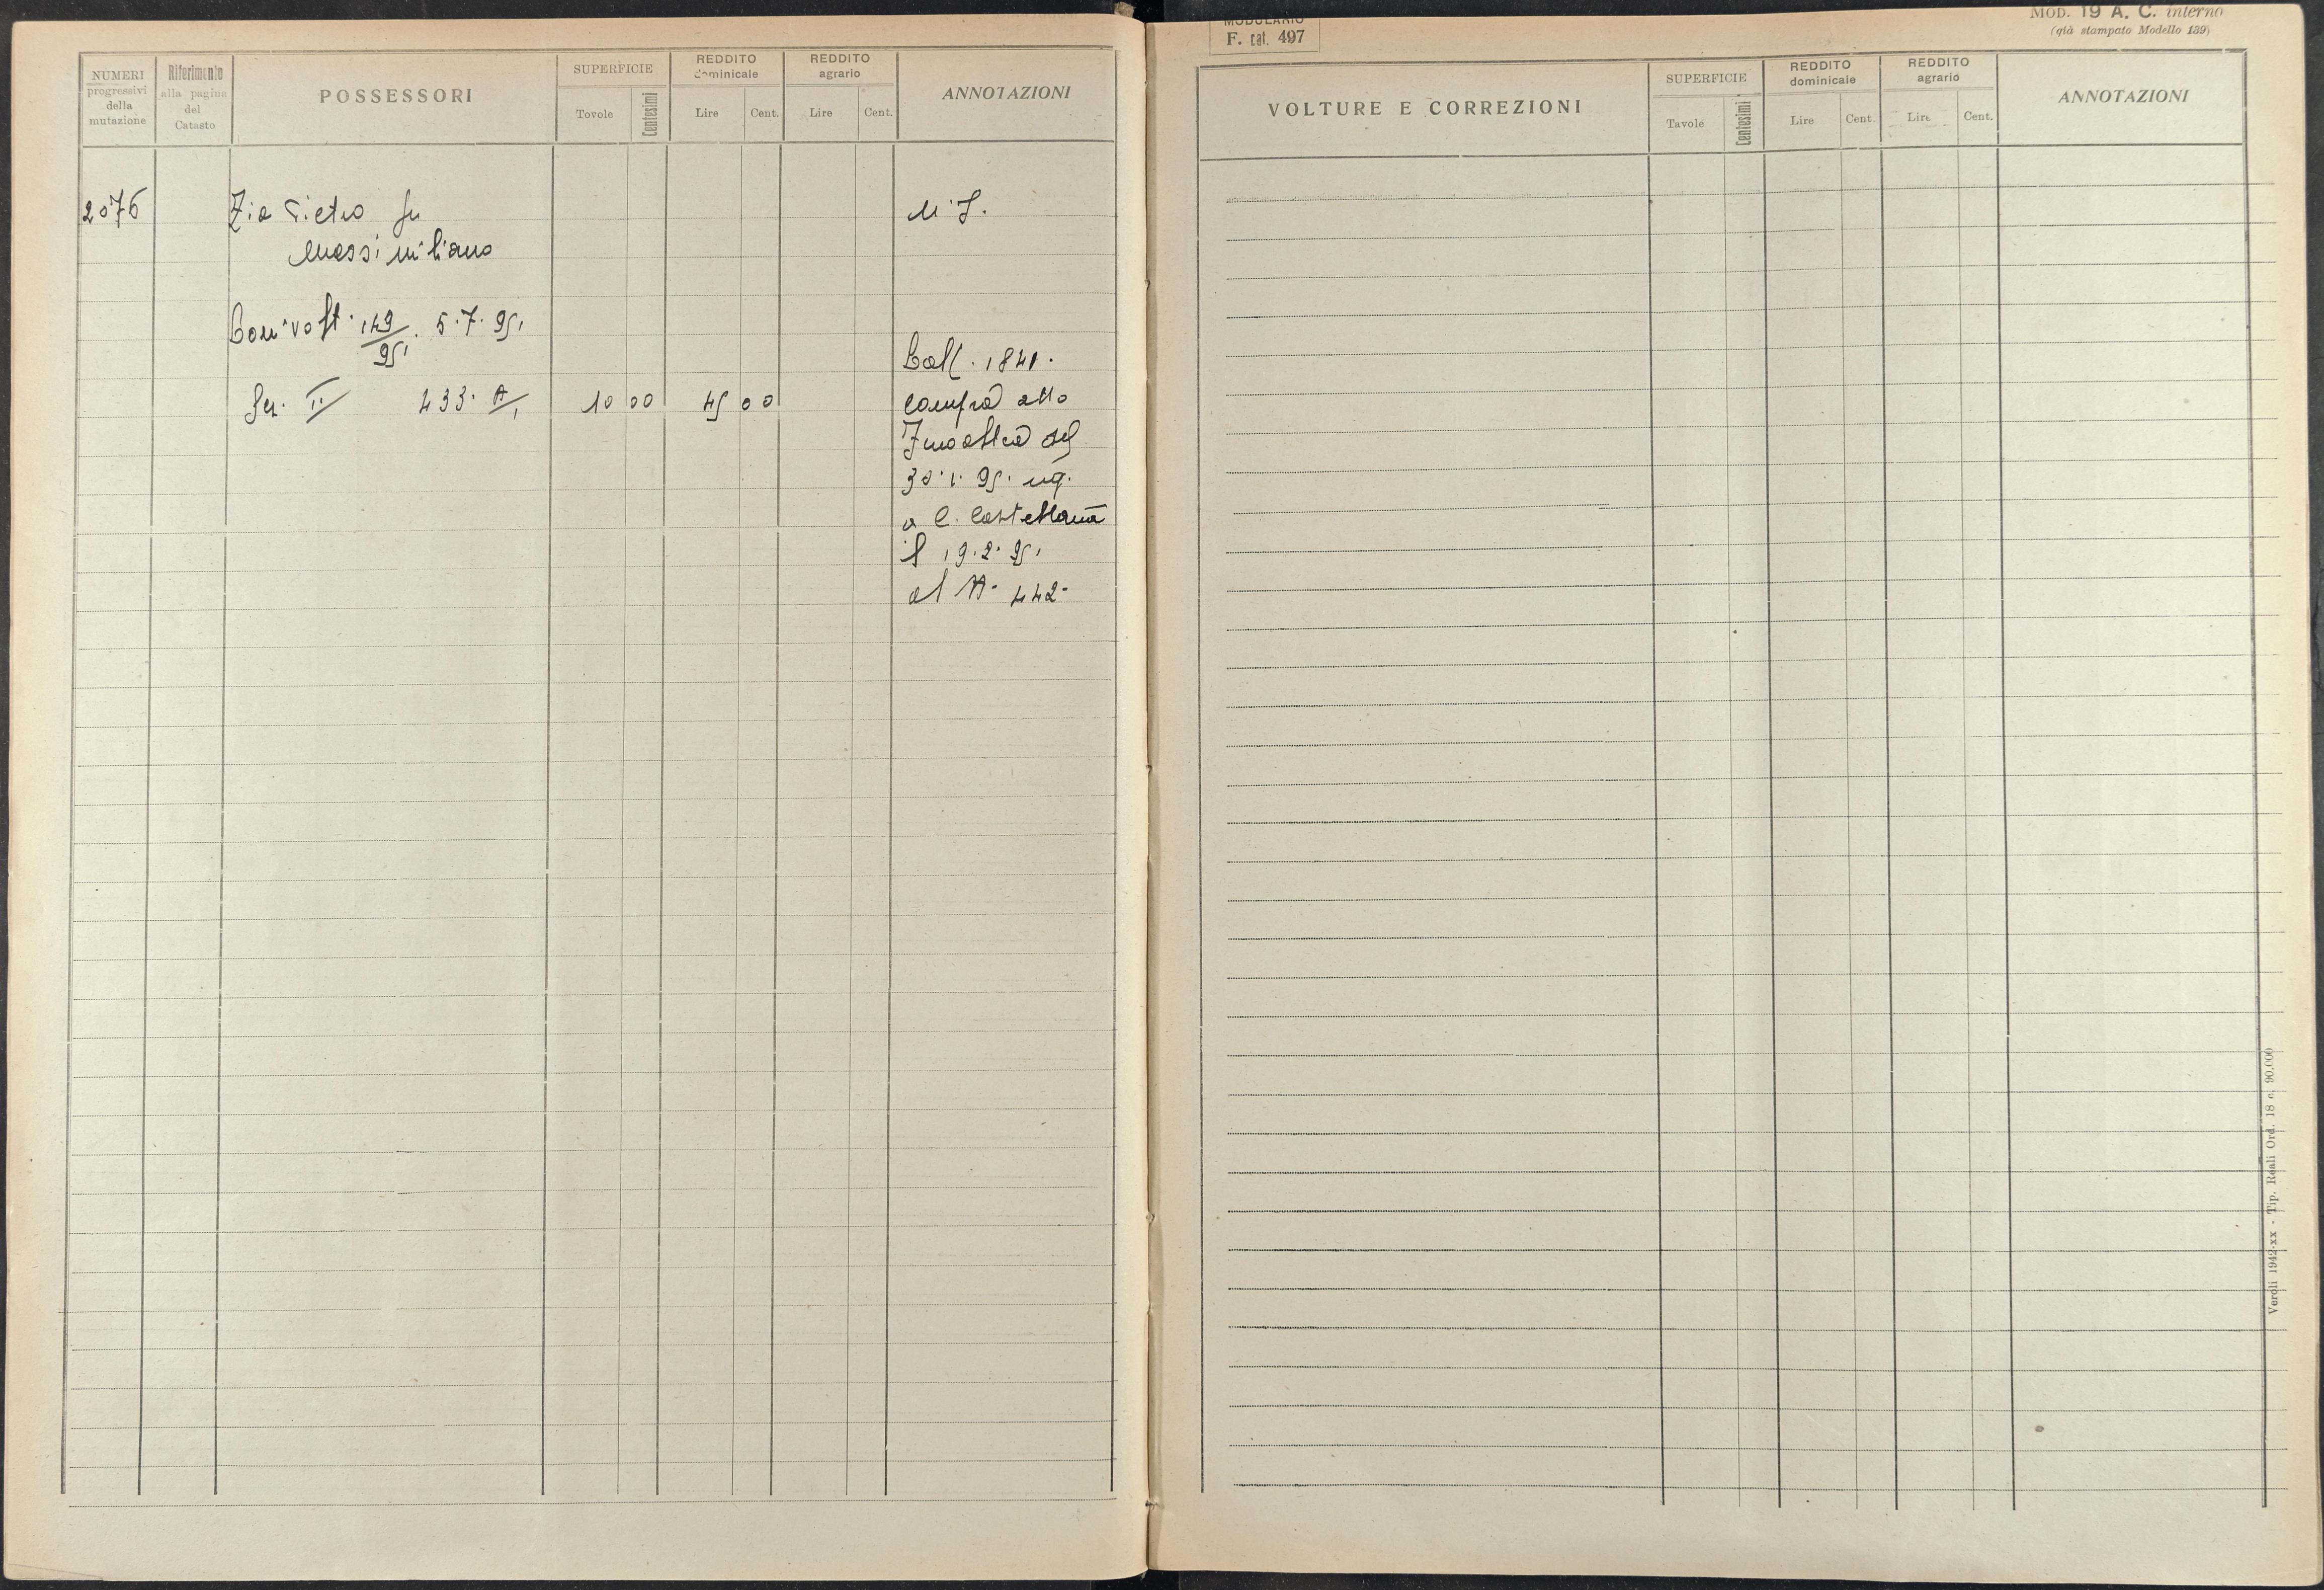 NUMERI
progressivi
della
mutazione
Riferimento
alla pagine
del
Catasto
POSSESSORI
SUPERFICIE
Tovole
Centesimi
REDDITO
dominicale
Lire
Cent.
REDDITO
agrario
Lire
Cent.
ANNOTAZIONI
2076
Zia Pietro fu
Massimiliano
M. I.
149/951 5.7.951
Sez. II 433. A/1 10 00 45 00
1841.
compra atto
del
30.1.951
a C. Castellana
il 19.2.951
al N. 442
MODULARIO
F. cat. 497
MOD. 19 A. C. interno
(già stampato Modello 139)
VOLTURE E CORREZIONI
SUPERFICIE
Tavole
Centesimi
REDDITO
dominicale
Lire
Cent.
REDDITO
agrario
Lire
Cent.
ANNOTAZIONI
Veroli 1942-xx - Tip. Reali Ord. 18 c. 90.000